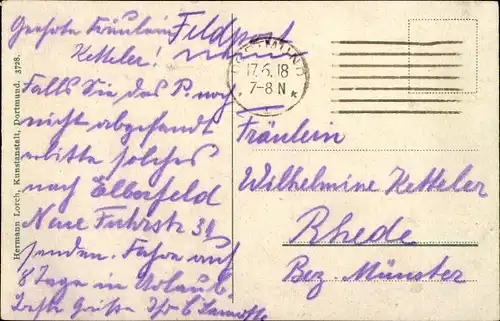 Geehrte Fräulein
Ketteler!
Feldpost
Falls Sie das P. noch
nicht abgesandt
erbitte solches
nach Elberfeld
Neue Fuhrstr
senden. Fahre auf
8 Tage in Urlaub
Beste Grüße
DORTMUND
17.6.18
7-8 N
*
Fräulein
Wilhelmine Ketteler
Rhede
Bez. Münster
Hermann Lorch, Kunstanstalt, Dortmund. 3728.